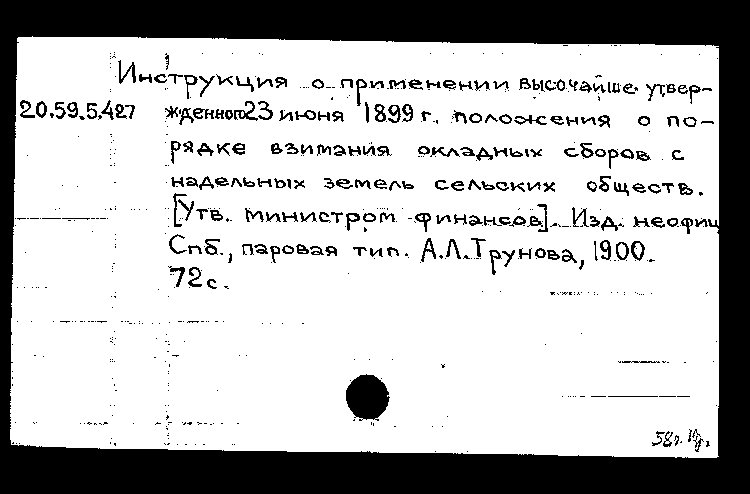 Инструкция о применении высочайше утвер-
20.59.5.427 жденного 23 июня 1899 г. положения о по-
рядке взимания окладных сборов с
надельных земель сельских обществ.
[Утв. министром финансов]. Изд. неофиц
Спб., паровая тип. А.Л.Трунова, 1900.
72 с.
58г.